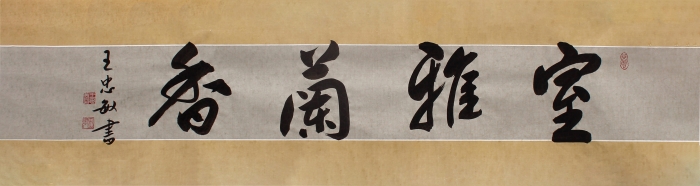 室雅蘭香
王忠敏書